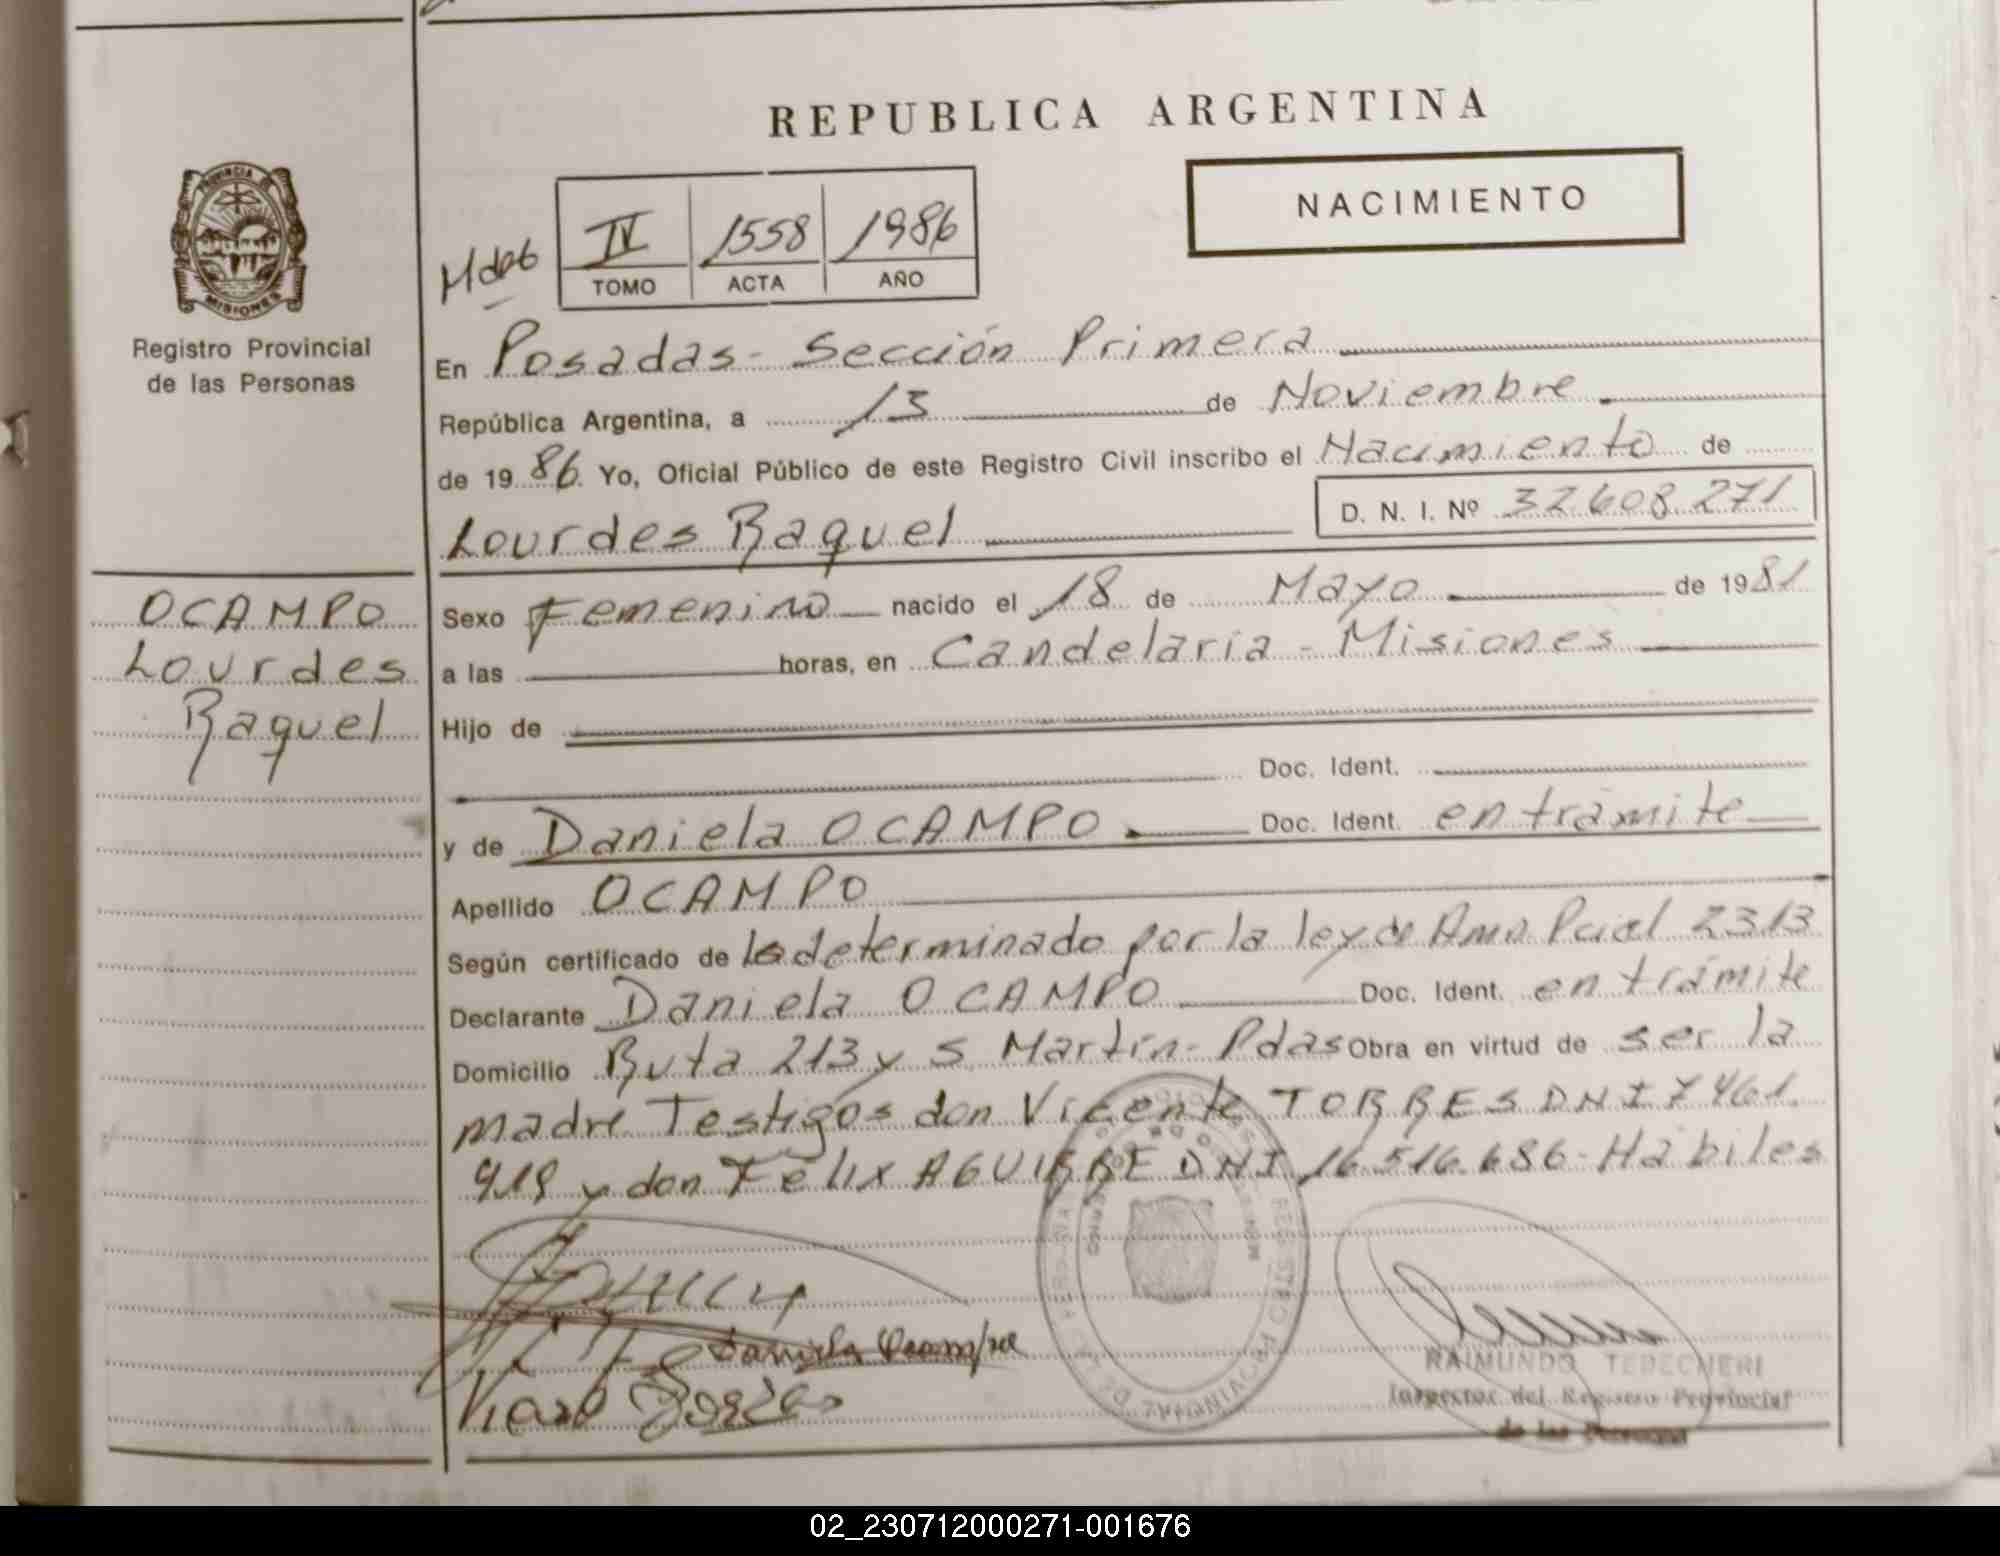 REPUBLICA ARGENTINA
NACIMIENTO
PROVINCIA DE
MISIONES
Registro Provincial
de las Personas
IV 1558 1986
TOMO ACTA AÑO
En Posadas - Sección Primera
República Argentina, a 13 de Noviembre
de 1986. Yo, Oficial Público de este Registro Civil inscribo el Nacimiento de
Lourdes Raquel D. N. I. Nº 32.608.271
OCAMPO
Lourdes
Raquel
Sexo Femenino nacido el 18 de Mayo de 1981
a las horas, en Candelaria - Misiones
Hijo de
Doc. Ident.
y de Daniela OCAMPO Doc. Ident. en trámite
Apellido OCAMPO
Según certificado de lo determinado por la ley de Amn. Pcial 2313
Declarante Daniela OCAMPO Doc. Ident. en trámite
Domicilio Ruta 213 y S. Martín - Pdas Obra en virtud de ser la
madre Testigos don Vicente TORRES DNI 7.461.
919 y don Félix AGUIRRE DNI 16.516.686 - Hábiles
Daniela Ocampo
RAIMUNDO TEDECHERI
Inspector del Registro Provincial
de las Personas
02_230712000271-001676